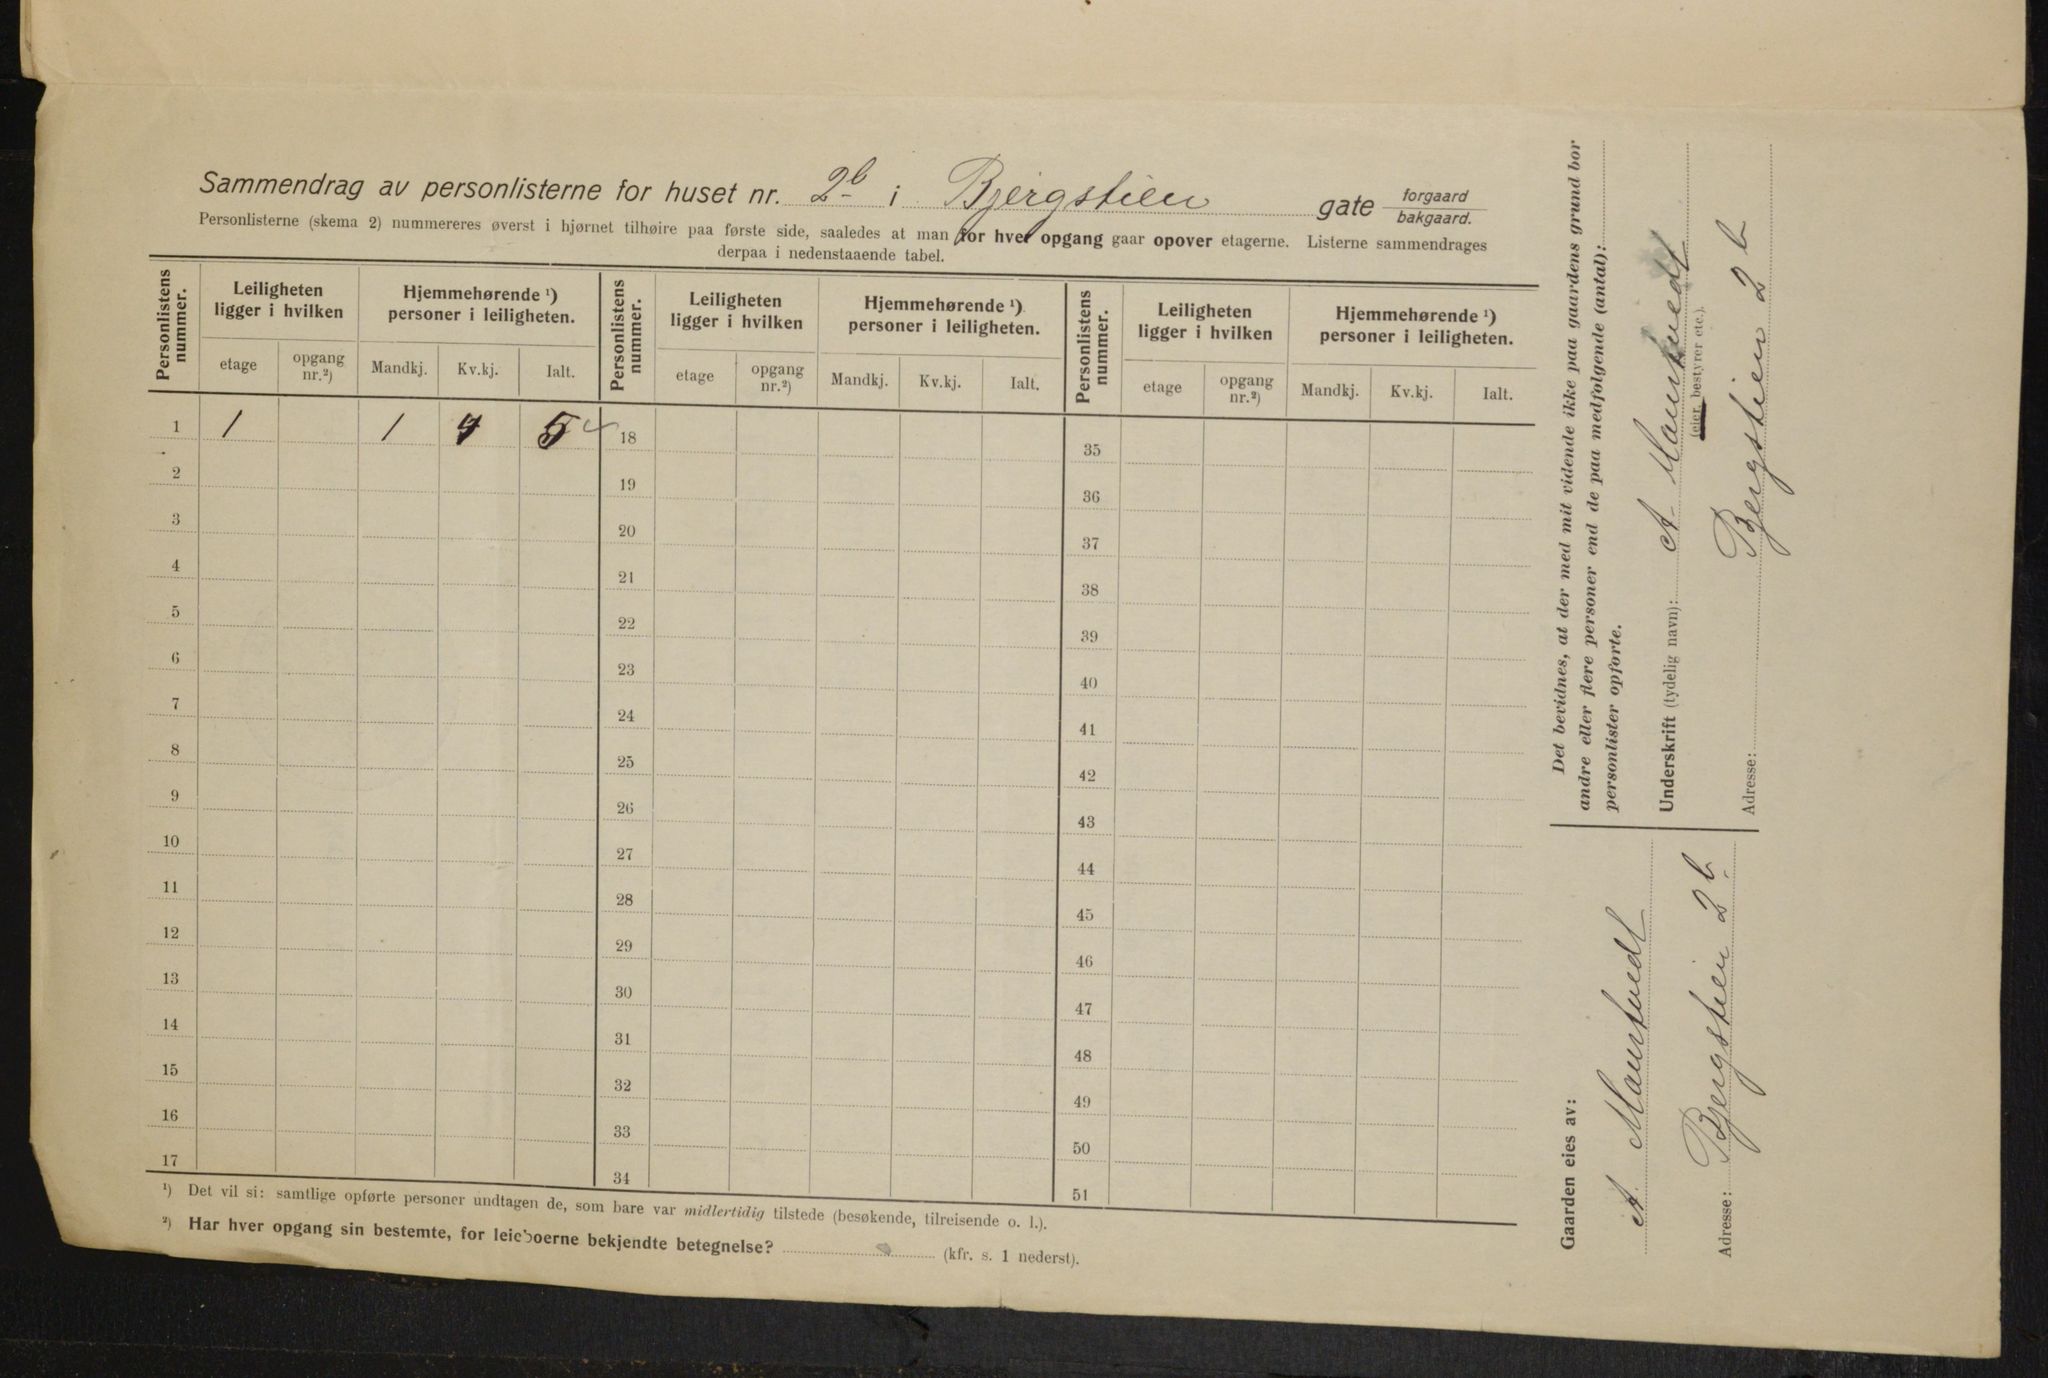 Sammendrag av personlisterne for huset nr. 2b i Bjergstien gate forgaard bakgaard.
Personlisterne (skema 2) nummereres øverst i hjørnet tilhøire paa første side, saaledes at man for hver opgang gaar opover etagerne. Listerne sammendrages
derpaa i nedenstaaende tabel.
Personlistens nummer. Leiligheten ligger i hvilken Hjemmehørende ¹) personer i leiligheten. Personlistens nummer. Leiligheten ligger i hvilken Hjemmehørende ¹) personer i leiligheten. Personlistens nummer. Leiligheten ligger i hvilken Hjemmehørende ¹) personer i leiligheten.
etage opgang nr.²) Mandkj. Kv.kj. Ialt. etage opgang nr.²) Mandkj. Kv.kj. Ialt. etage opgang nr.²) Mandkj. Kv.kj. Ialt.
1 1 1 4 5 18 35
2 19 36
3 20 37
4 21 38
5 22 39
6 23 40
7 24 41
8 25 42
9 26 43
10 27 44
11 28 45
12 29 46
13 30 47
14 31 48
15 32 49
16 33 50
17 34 51
¹) Det vil si: samtlige opførte personer undtagen de, som bare var midlertidig tilstede (besøkende, tilreisende o. l.).
²) Har hver opgang sin bestemte, for leieboerne bekjendte betegnelse? (kfr. s. 1 nederst).
Det bevidnes, at der med mit vidende ikke paa gaardens grund bor
andre eller flere personer end de paa medfølgende (antal):
personlister opførte.
Underskrift (tydelig navn): A. Mantvedt
(eier, bestyrer etc.).
Adresse: Bjergstien 2b
Gaarden eies av:
A. Mantvedt
Adresse: Bjergstien 2b.